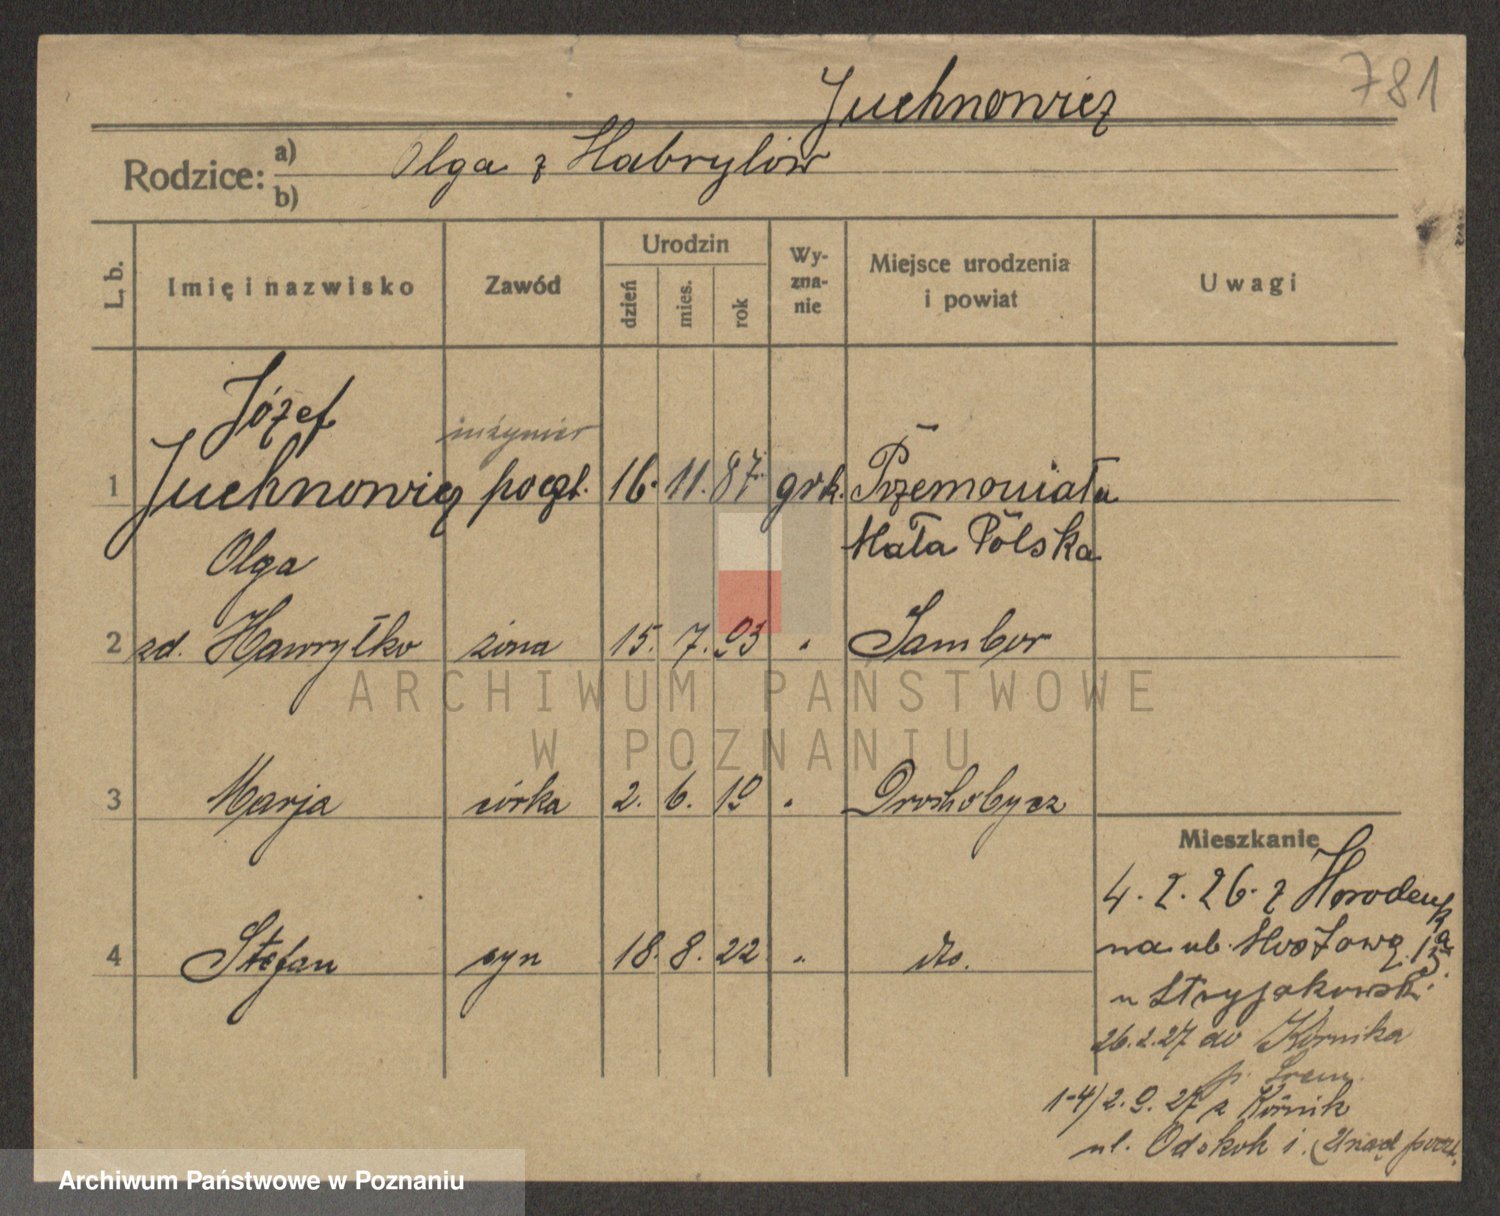 781
Juchnowicz
Rodzice: a) Olga z Habrylów
b)
L. b. Imię i nazwisko Zawód Urodzin dzień mies. rok Wyznanie Miejsce urodzenia i powiat Uwagi
Józef
inżynier
1 Juchnowicz poczt. 16. 11. 87. grk.
Mała Polska
Olga
2 zd. Hawryłko żona 15. 7. 93 " Sambor
3 Marja córka 2. 6. 19 " Drohobycz
Mieszkanie
4. 2. 26. z Horodenk
4 Stefan syn 18. 8. 22 " dto.
na ul. Mostową 15a.
u Stryjakowski.
26.2.27 do Kórnika
p. Śrem.
1-4/2.9.27 z Kórnik
ul. (Urząd poczt.
ARCHIWUM PAŃSTWOWE
W POZNANIU
Archiwum Państwowe w Poznaniu